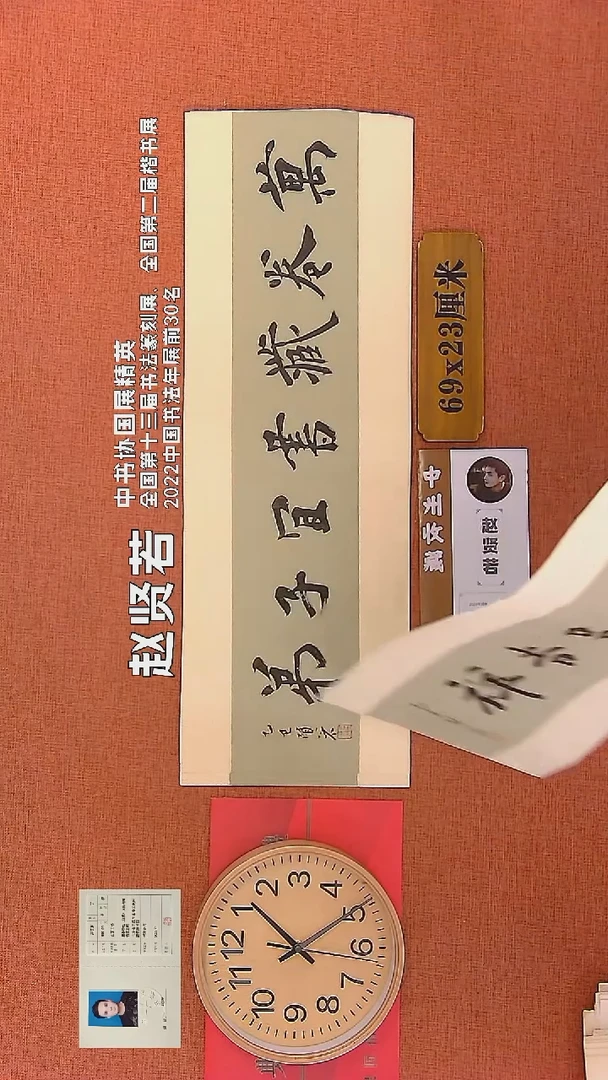 赵贤若
中书协国展精英
全国第十三届书法篆刻展、全国第二届楷书展
2022中国书法年展前30名
萬卷藏書宜子弟
乙巳賢若
69x23厘米
赵贤若
吉祥
12
1
2
3
4
5
6
7
8
9
10
11